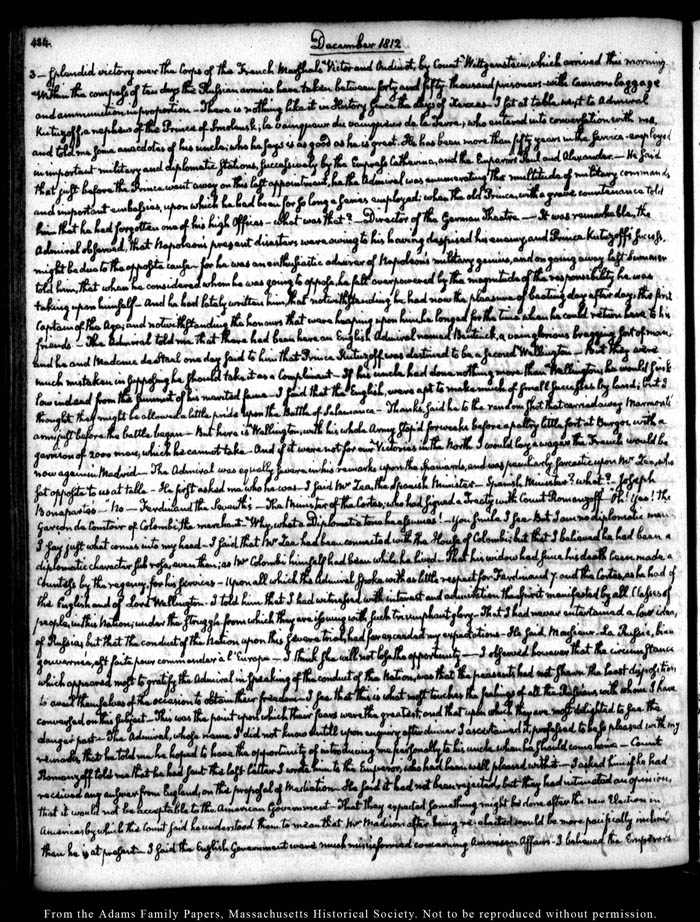 434.
December 1812
3 — Splendid victory over the Corps of the French Marshals Victor and Oudinot, by Count Wittgenstein, which arrived this morning.
Within the compass of ten days the Russian armies have taken between forty and fifty thousand prisoners — with cannons baggage
and ammunition in proportion — There is nothing like it in History since the days of Xerxes — I sat at table next to Admiral
Kutuzoff a nephew of the Prince of Smolensk; le vainqueur du vainqueur de la Terre; who entered into conversation with me,
and told me some anecdotes of his uncle; who he says is as good as he is great. He has been more than fifty years in the service — employed
in important military and diplomatic Stations, successively by the Empress Catherine, and the Emperors Paul and Alexander — He said
that just before the Prince went away on this last appointment, he the Admiral was enumerating the multitude of military commands
and important embassies, upon which he had been for so long a series employed; when the old Prince, with a grave countenance told
him that he had forgotten one of his high Offices — what was that? — Director of the German Theatre — It was remarkable, the
Admiral observed, that Napoleon's present disasters were owing to his having despised his enemy, and Prince Kutuzoff's success,
might be due to the opposite cause — for he was an enthusiastic admirer of Napoleon's military genius, and on going away last Summer
told him, that when he considered whom he was going to oppose, he felt overpowered by the magnitude of the responsibility he was
taking upon himself — And he had lately written him, that notwithstanding he had now the pleasure of beating day after day, the first
Captain of the Age; and notwithstanding the honours that were heaping upon him he longed for the time when he could return here to his
friends — The Admiral told me that there had been here an English Admiral named a vain glorious bragging sort of man,
and he and Madame de Stael one day said to him that Prince Kutuzoff was destined to be a second Wellington — But they were
much mistaken in supposing he should take it as a Compliment — If his uncle had done nothing more than Wellington, he would sink
low indeed from the summit of his merited fame — I said that the English, were apt to make much of small successes by land; but I
thought they might be allowed a little pride upon the Battle of Salamanca — Thanks, said he to the random shot that carried away Marmont's
arm, just before the battle began — But here is Wellington, with his whole Army stop'd for weeks before a paltry little fort at Burgos, with a
garrison of 2000 men, which he cannot take — And if it were not for our Victories in the North I would lay a wager the French would be
now again in Madrid — The Admiral was equally severe in his remarks upon the Spaniards, and was peculiarly sarcastic upon Mr Zea, who
sat opposite to us at table — He first asked me who he was — I said Mr Zea, the Spanish Minister — Spanish Minister? what? — Joseph
Bonaparte's — No — Ferdinand the Seventh's — The Minister of the Cortes, who had signed a Treaty with Count Romanzoff — Oh! Yes! The
Garçon de Comtoir of Colombi, the merchant — Why, what a Diplomatic tone he assumes! — You smile I see — But I am no diplomatic man —
I say just what comes into my head — I said that Mr Zea had been connected with the House of Colombi; but that I believed he had been a
diplomatic character sub rosa, even then; as Mr Colombi himself had been while he lived — That his widow had since his death been made a
Countess by the regency, for his services — Upon all which the Admiral spoke with as little respect for Ferdinand 7. and the Cortes, as he had of
the English and of Lord Wellington — I told him that I had witnessed with interest and admiration the spirit manifested by all Classes of
people, in this Nation; under the struggle from which they are issuing with such triumphant glory — That I had never entertained a low idea,
of Russia, but that the conduct of the Nation upon this severe trial, had far exceeded my expectations — He said, Monsieur — La Russie, bien
gouvernée, est faite pour commander à l'Europe — I think she will not lose the opportunity — I observed however that the circumstance
which appeared most to gratify the Admiral in speaking of the conduct of the Nation, was that the peasants had not shewn the least disposition
to avail themselves of the occasion to obtain their freedom — I see that this is what most touches the feelings of all the Russians with whom I have
conversed on this subject — This was the point upon which their fears were the greatest, and that upon which they are most delighted to see the
danger past — The Admiral, whose name I did not know until upon enquiry after dinner I ascertained it, professed to be so pleased with my
remarks, that he told me he hoped to have the opportunity of introducing me personally to his uncle when he should come home — Count
Romanzoff told me that he had sent the last letter I wrote him to the Emperor, who had been well pleased with it — I asked him if he had
received any answer from England, on the proposal of Mediation. He said it had not been rejected, but they had intimated an opinion,
that it would not be acceptable to the American Government — That they expected something might be done after the new Election in
America; by which the Count said he understood them to mean that Mr Madison after being re-elected would be more pacifically inclin'd
than he is at present — I said the English Government were much misinformed concerning American Affairs — I believed the Emperor's
From the Adams Family Papers, Massachusetts Historical Society. Not to be reproduced without permission.